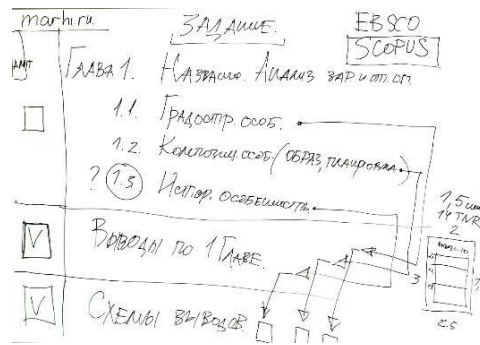 marhi.ru
ЗАДАНИЕ.
EBSCO
SCOPUS
ГЛАВА 1. НАЗВАНИЕ. АНАЛИЗ ЗАР. И ОТ. ОП.
1.1. ГРАДОСТР. ОСОБ.
1.2. КОМПОЗИЦ. ОСОБ. (ОБРАЗ, ПЛАНИРОВКА)
? 1.3 ИСТОР. ОСОБЕННОСТИ.
1,5
14 TNR
2
ВЫВОДЫ ПО 1 ГЛАВЕ.
3
2.5
СХЕМЫ ВЫВОДОВ.